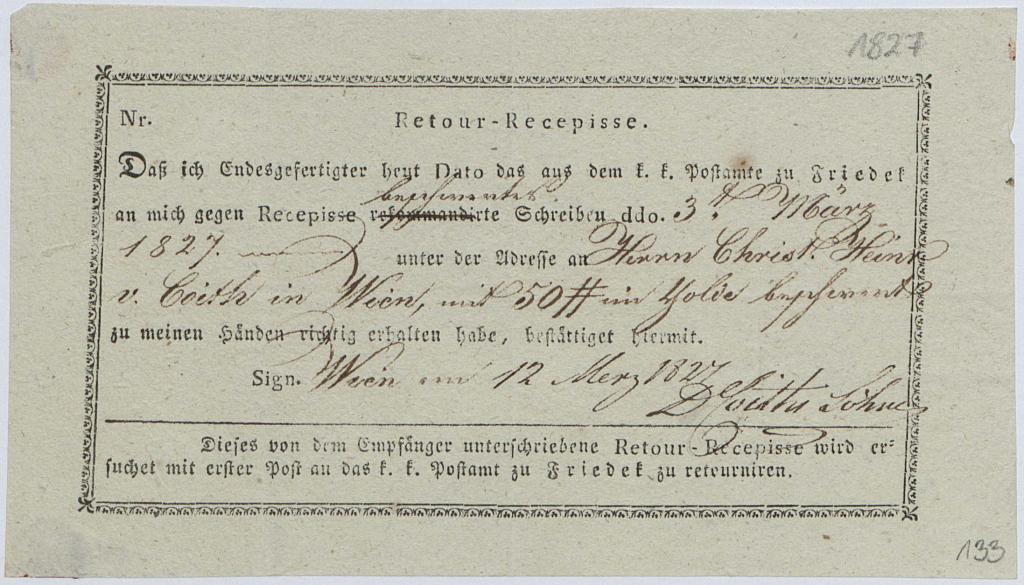 1827
Nr.
Retour-Recepisse.
Daß ich Endesgefertigter heut Dato das aus dem k. k. Postamte zu Friedek
beschwertes
an mich gegen Recepisse rekommandirte Schreiben ddo. 3t März
1827. unter der Adresse an Herrn Christ. Heinr
v. Coith in Wien, mit 50 # im Golde beschwert
zu meinen Händen richtig erhalten habe, bestättiget hiermit.
Sign. Wien am 12 Merz 1827
Coiths Söhne
Dieses von dem Empfänger unterschriebene Retour-Recepisse wird er-
suchet mit erster Post an das k. k. Postamt zu Friedek zu retourniren.
133